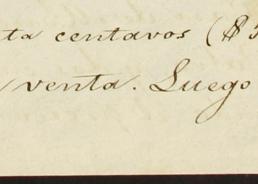 ta centavos ($
venta. Luego